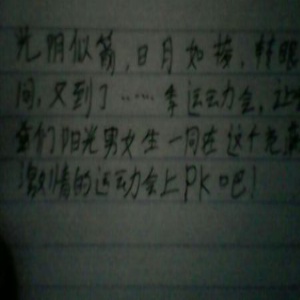 光阴似箭,日月如梭,转眼
间,又到了……季运动会,让
我们阳光男女生一同在这个充满
激情的运动会上PK吧!